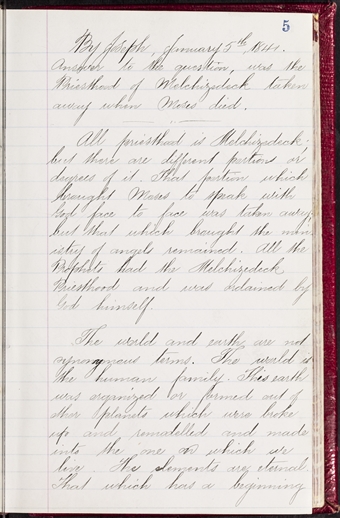 5
By Joseph, January 5th, 1841.
Answer to the question, was the
Priesthood of Melchizedeck taken
away when Moses died.
All priesthood is Melchizedeck;
but there are different portions or
degrees of it. That portion which
brought Moses to speak with
God face to face was taken away;
but that which brought the min-
istry of angels remained. All the
Prophets had the Melchizedeck
Priesthood and was ordained by
God himself.
The world and earth are not
synonymous terms. The world is
the human family. This earth
was organized or formed out of
other planets which were broke
up and remodelled and made
into the one on which we
live. The elements are eternal.
That which has a beginning